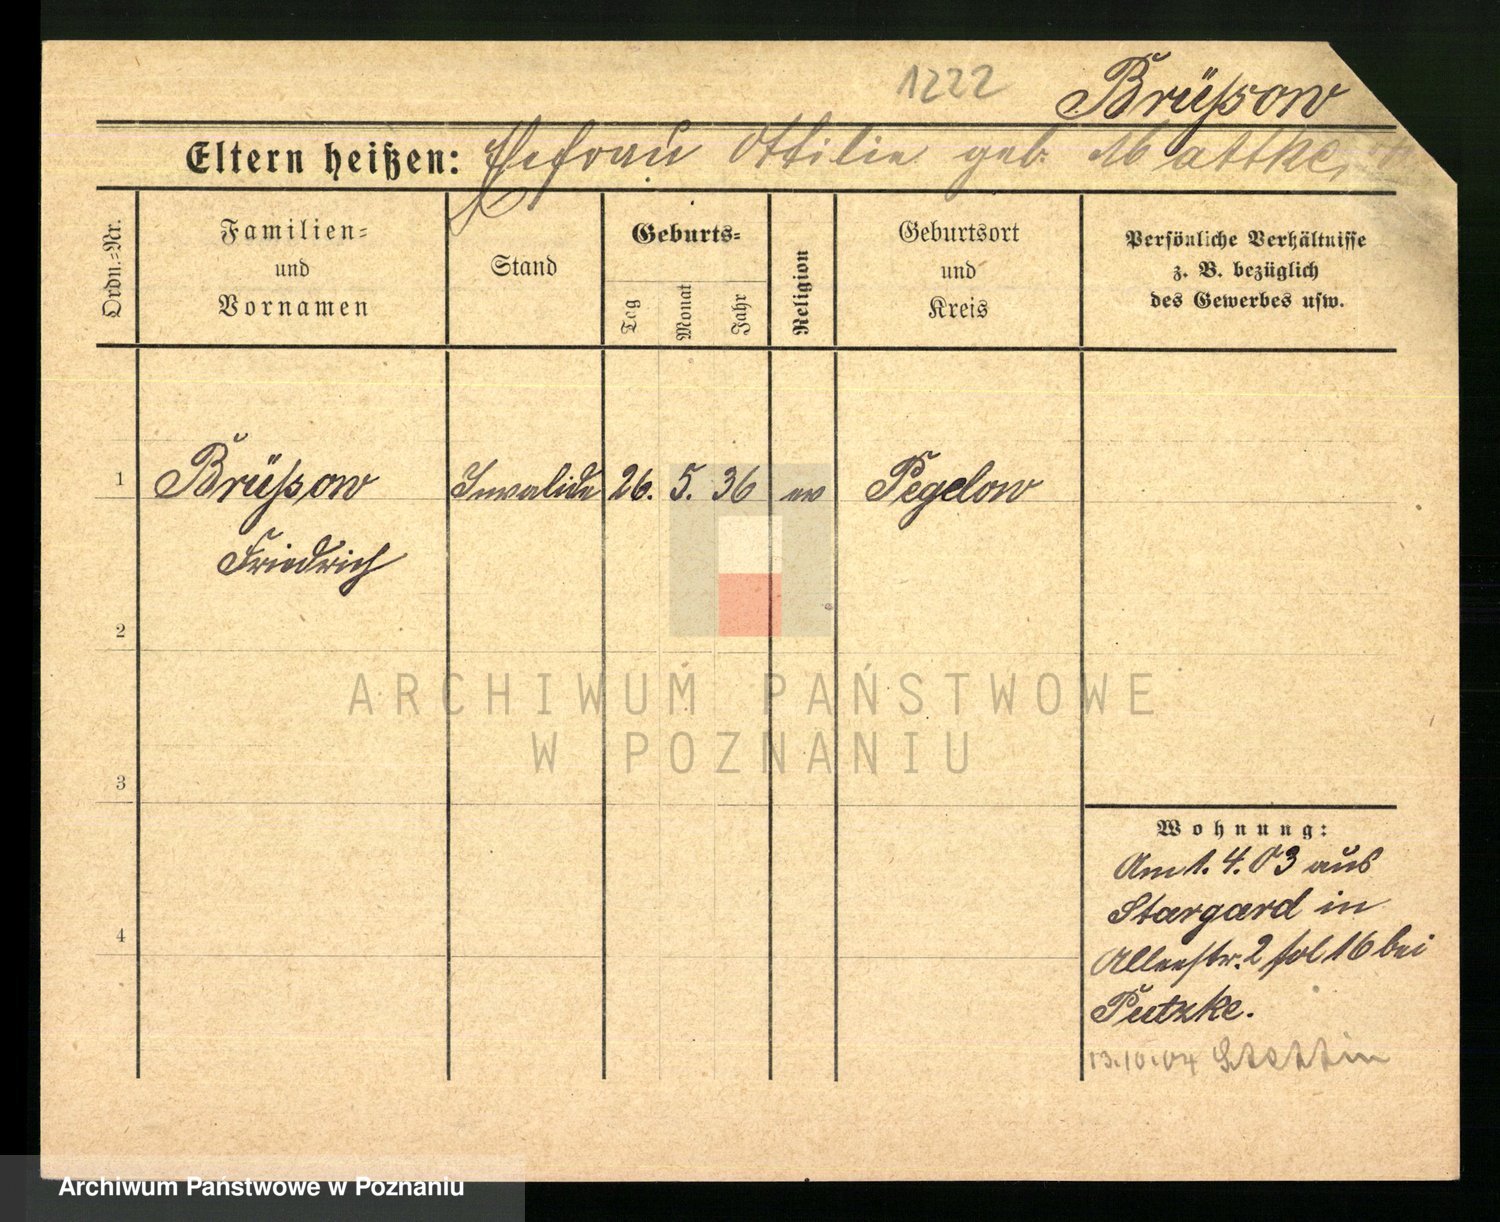 1222 Brüßow
Eltern heißen: Ehefrau Ottilie geb.
Ordn.=Nr.
Familien=
und
Vornamen
Stand
Geburts=
Tag
Monat
Jahr
Religion
Geburtsort
und
Kreis
Persönliche Verhältnisse
z. B. bezüglich
des Gewerbes usw.
1 Brüßow Invalide 26. 5. 36 ev Pegelow
Friedrich
2
ARCHIWUM PAŃSTWOWE
W POZNANIU
3
Wohnung:
Am 1. 4. 03 aus
Stargard in
4
Alleestr. 2 fol 16 bei
Putzke.
13.10.04 Stettin
Archiwum Państwowe w Poznaniu